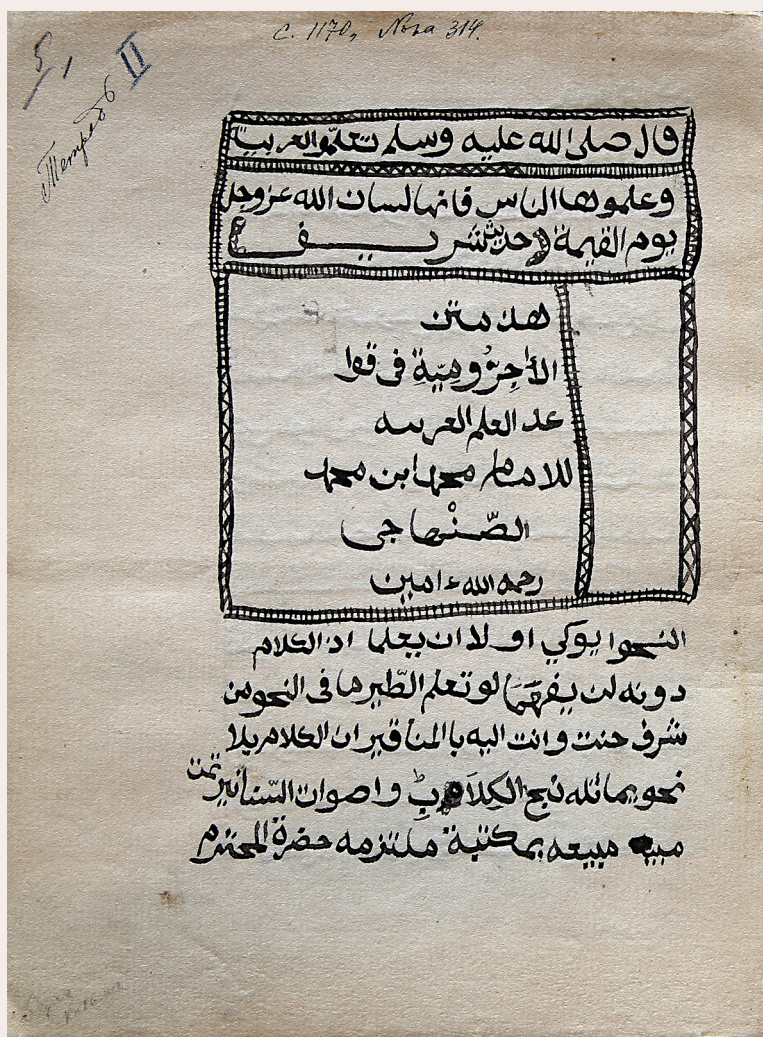 С. 1170, Nova 314.
5, II
Тетрадь
قال صلى الله عليه وسلم تعلموالعربية
وعلموها الناس فانها لسان الله عزوجل
يوم القيمة (حديث شريف)
هذ متن
الأٰجِرُّومِيّةِ فى قوا
عد العلم العربيه
للامام محمد ابن محمد
الصّنْهاجى
رحمه الله ءامين
النحوا يوكي او لا ان يعلما اذ الكلام
دونه لن يفهَمَا لو تعلم الطّير ما فى النحو من
شرف حنت وانت اليه باالمناقير ان الكلام بلا
نحو يماثله نبح الكِلاَبِ واصوات السّنانير تمت
مبيعه بمكتبة ملتزمه حضرة المحترم